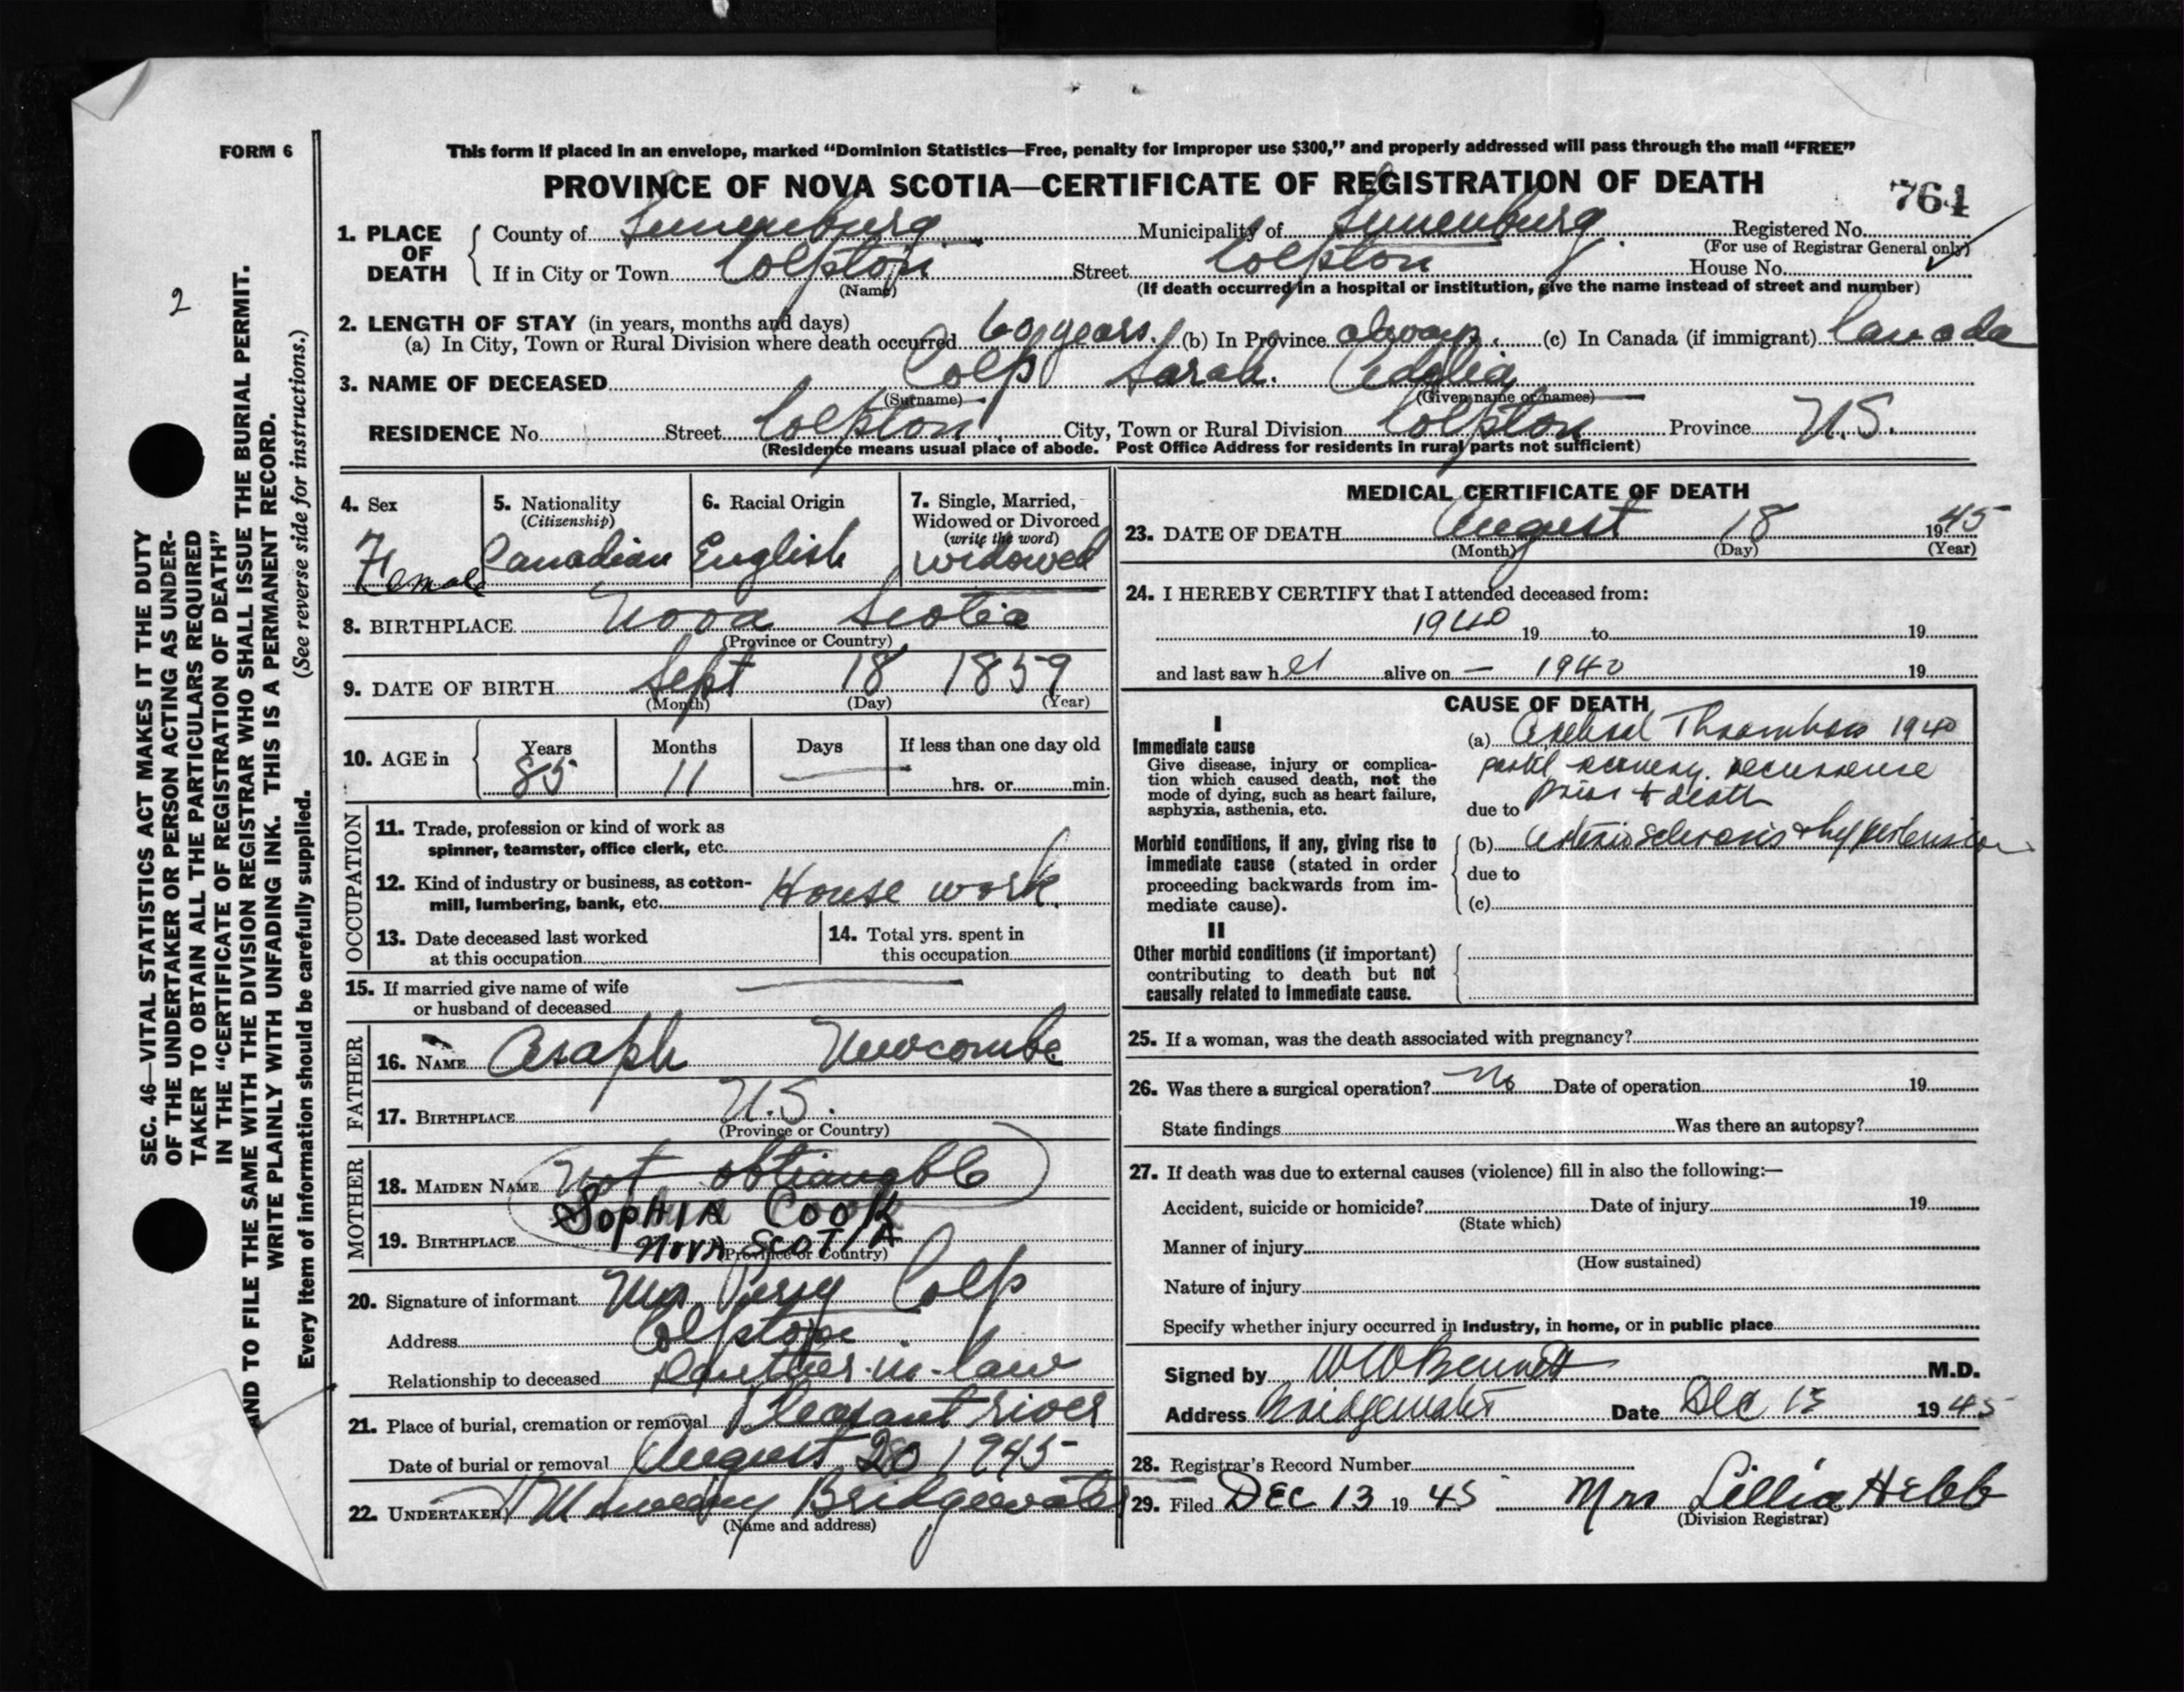 FORM 6
This form if placed in an envelope, marked “Dominion Statistics—Free, penalty for improper use $300,” and properly addressed will pass through the mail “FREE”
PROVINCE OF NOVA SCOTIA—CERTIFICATE OF REGISTRATION OF DEATH
764
1. PLACE OF DEATH
County of Lunenburg Municipality of Lunenburg Registered No.
(For use of Registrar General only)
If in City or Town Colpton Street Colpton House No.
(Name) (If death occurred in a hospital or institution, give the name instead of street and number)
2. LENGTH OF STAY (in years, months and days)
(a) In City, Town or Rural Division where death occurred 60 years. (b) In Province always. (c) In Canada (if immigrant) Canada
3. NAME OF DECEASED Colp Sarah. Edalia
(Surname) (Given name or names)
RESIDENCE No. Street Colpton City, Town or Rural Division Colpton Province N.S.
(Residence means usual place of abode. Post Office Address for residents in rural parts not sufficient)
4. Sex
Female
5. Nationality
(Citizenship)
Canadian
6. Racial Origin
English
7. Single, Married,
Widowed or Divorced
(write the word)
widowed
8. BIRTHPLACE Nova Scotia
(Province or Country)
9. DATE OF BIRTH Sept 18 1859
(Month) (Day) (Year)
10. AGE in
Years Months Days If less than one day old
85 11 — hrs. or min.
OCCUPATION
11. Trade, profession or kind of work as
spinner, teamster, office clerk, etc.
12. Kind of industry or business, as cotton-
mill, lumbering, bank, etc. House work
13. Date deceased last worked
at this occupation
14. Total yrs. spent in
this occupation
15. If married give name of wife
or husband of deceased —
FATHER
16. NAME Asaph Newcombe
17. BIRTHPLACE N.S.
(Province or Country)
MOTHER
18. MAIDEN NAME Not obtianable
SOPHIA COOK
19. BIRTHPLACE NOVA SCOTIA
(Province or Country)
20. Signature of informant Mrs. Percy Colp
Address Colpton
Relationship to deceased Daughter-in-law
21. Place of burial, cremation or removal Pleasant river
Date of burial or removal August 20 1945
22. UNDERTAKER Bridgewater
(Name and address)
MEDICAL CERTIFICATE OF DEATH
23. DATE OF DEATH August 18 1945
(Month) (Day) (Year)
24. I HEREBY CERTIFY that I attended deceased from:
1940 19 to 19
and last saw her alive on — 1940 19
CAUSE OF DEATH
I
Immediate cause
Give disease, injury or complica-
tion which caused death, not the
mode of dying, such as heart failure,
asphyxia, asthenia, etc.
(a) Cerebral Thrombosis 1940
partial recovery. recurrence
due to prior to death
Morbid conditions, if any, giving rise to
immediate cause (stated in order
proceeding backwards from im-
mediate cause).
(b) arteriosclerosis & hypertension
due to
(c)
II
Other morbid conditions (if important)
contributing to death but not
causally related to immediate cause.
25. If a woman, was the death associated with pregnancy?
26. Was there a surgical operation? No Date of operation 19
State findings Was there an autopsy?
27. If death was due to external causes (violence) fill in also the following:—
Accident, suicide or homicide? Date of injury 19
(State which)
Manner of injury
(How sustained)
Nature of injury
Specify whether injury occurred in industry, in home, or in public place
Signed by W W Bennett M.D.
Address Bridgewater Date Dec 13 1945
28. Registrar's Record Number
29. Filed DEC 13 19 45 Mrs Lillia Hebb
(Division Registrar)
2
SEC. 46—VITAL STATISTICS ACT MAKES IT THE DUTY
OF THE UNDERTAKER OR PERSON ACTING AS UNDER-
TAKER TO OBTAIN ALL THE PARTICULARS REQUIRED
IN THE “CERTIFICATE OF REGISTRATION OF DEATH”
AND TO FILE THE SAME WITH THE DIVISION REGISTRAR WHO SHALL ISSUE THE BURIAL PERMIT.
WRITE PLAINLY WITH UNFADING INK. THIS IS A PERMANENT RECORD.
Every item of information should be carefully supplied. (See reverse side for instructions.)